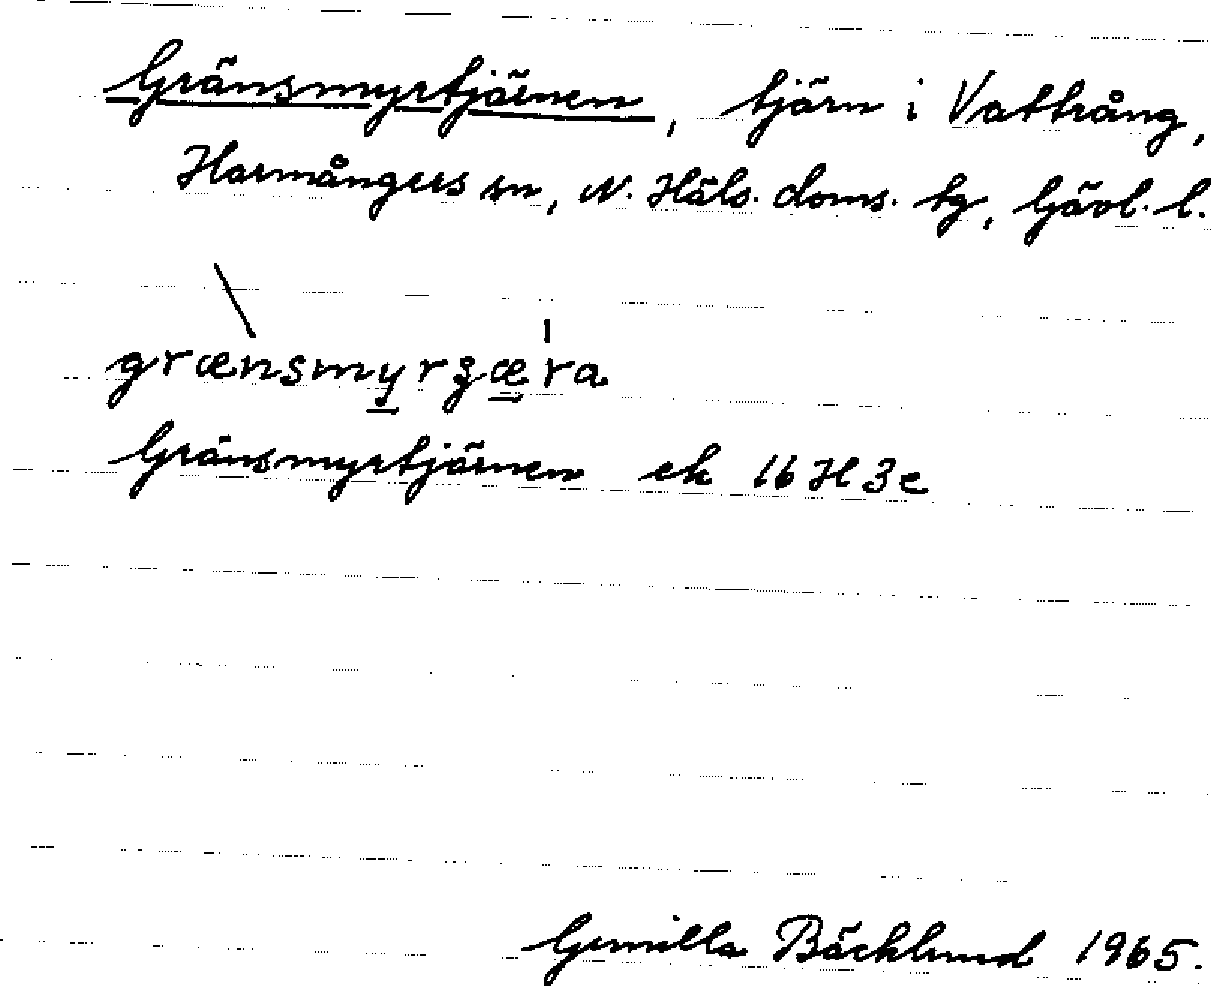 Gränsmyrtjärnen, tjärn i Vattrång,
Harmångers sn, N. Häls. doms. tg, Gävl. l.
grænsmyrʒæra
Gränsmyrtjärnen ek 16H3e
Gunilla Bäcklund 1965.